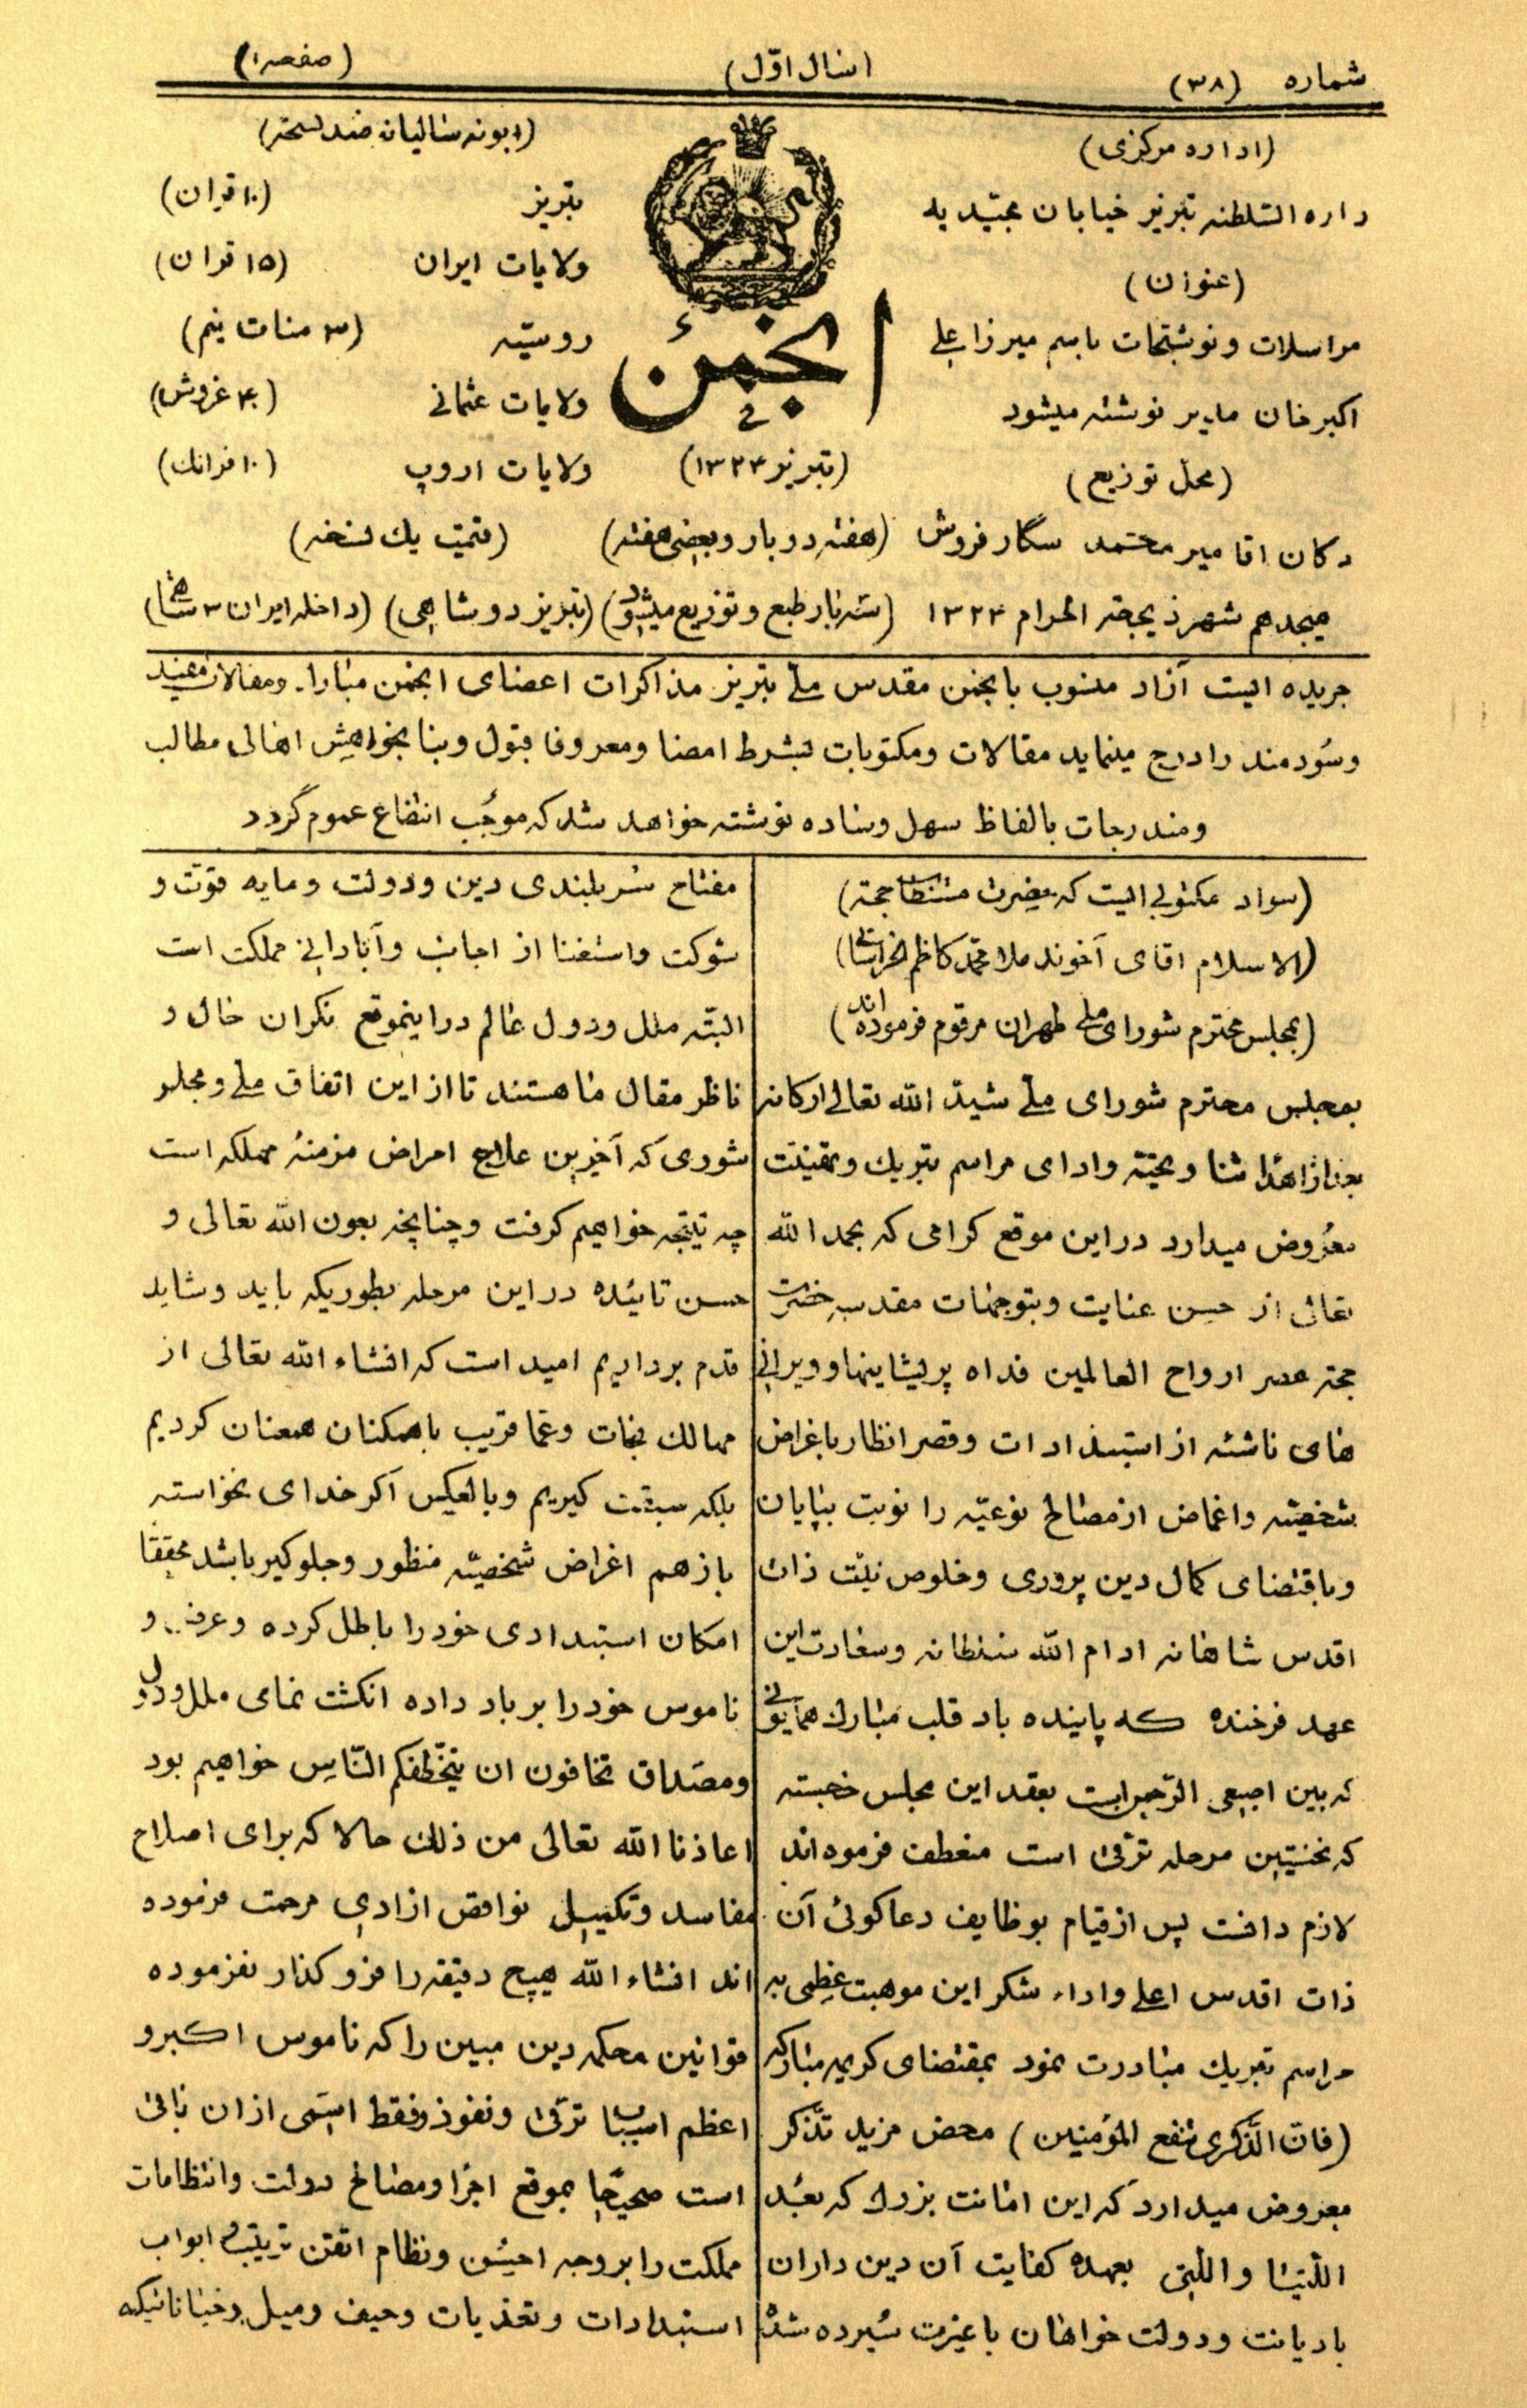 شماره (۳۸)
(سال اوّل)
(صفحه ۱)
(اداره مرکزی)
داره السّلطنه تبریز خیابان مجیدیه
(عنوان)
مراسلات و نوشتجات باسم میرزا علی
اکبرخان مدیر نوشته میشود
(محل توزیع)
دکان اقا میر محمد سگار فروش
هیجدهم شهر ذیحجه الحرام ۱۳۲۴
انجمن
(تبریز ۱۳۲۴)
(هفته دو بار و بعضی هفته)
(سه بار طبع و توزیع میشود)
(ابونه سالیانه صد نسخه)
تبریز (۱۰ قران)
ولایات ایران (۱۵ قران)
روسیّه (۳ منات نیم)
ولایات عثمانی (۴۰ غروش)
ولایات اروپ (۱۰ فرانک)
(قیمت یك نسخه)
(تبریز دو شاهی) (داخله ایران ۳ شاهی)
جریده ایست آزاد منسوب بانجمن مقدس ملی تبریز مذاکرات اعضای انجمن مبارك و مقالات مفید
و سودمند را درج مینماید مقالات و مکتوبات بشرط امضا و معروفا قبول و بنا بخواهش اهالی مطالب
و مندرجات بالفاظ سهل و ساده نوشته خواهد شد که موجب انتفاع عموم گردد
(سواد مکتوبی ایست که حضرت مستطاب حجة)
(الاسلام اقای آخوند ملا محمد کاظم الخراسانی)
(بمجلس محترم شورای ملی طهران مرقوم فرموده‌اند)
بمجلس محترم شورای ملی شیّد الله تعالی ارکانه
بعد از اهدا ثنا و تحیّت و ادای مراسم تبریك و تهنیت
معروض میدارد در این موقع کرامی که بحمد الله
تعالی از حسن عنایت و توجهات مقدسه حضرت
حجة عصر ارواح العالمین فداه پریشانیها و ویرانی
های ناشئه از استبدادات و قصر انظار باغراض
شخصیّه و اغماض از مصالح نوعیّه را نوبت بپایان
و باقتضای کمال دین پروری و خلوص نیّت ذات
اقدس شاهانه ادام الله سلطانه و سعادت این
عهد فرخنده که پاینده باد قلب مبارك همایونی
که بین اصبعی الرّحمن است بعقد این مجلس خجسته
که نخستین مرحله ترقی است منعطف فرموده اند
لازم دانست پس از قیام بوظایف دعا کوئی آن
ذات اقدس اعلی و اداء شکر این موهبت عظمی به
مراسم تبریك مبادرت نمود بمقتضای کریمه مبارکه
(فان الذّکری تنفع المؤمنین) محض مزید تذّکر
معروض میدارد که این امانت بزرك که بعد
اللّتیا و الّتی بعهده کفایت آن دین داران
بادیانت و دولت خواهان باغیرت سپرده شده
مفتاح سر بلندی دین و دولت و مایه قوّت و
شوکت و استغنا از اجانب و آبادانی مملکت است
البتّه ملل و دول عالم در اینموقع نکران حال و
ناظر مقال ما هستند تا از این اتفاق ملی و مجلس
شوری که آخرین علاج امراض مزمنهٔ مهلکه است
چه نتیجه خواهیم کرفت و چنانچه بعون الله تعالی و
حسن تائیده در این مرحله بطوریکه باید و شاید
قدم برداریم امید است که انشاء الله تعالی از
مهالك نجات و عمّا قریب با همکنان همعنان کردیم
بلکه سبقت کیریم و بالعکس اکر خدای نخواسته
باز هم اغراض شخصیّه منظور و جلو کیر باشد محققا
امکان استبدادی خود را باطل کرده و و
ناموس خود را بر باد داده انکشت نمای ملل و دول
و مصداق تخافون ان یتخّطفکم النّاس خواهیم بود
اعاذنا الله تعالی من ذلك حالا که برای اصلاح
مفاسد و تکمیل نواقص ازادی مرحمت فرموده
اند انشاء الله هیچ دقیقه را فرو کذار نفرموده
قوانین محکمه دین مبین را که ناموس اکبر و
اعظم اسباب ترقی و نفوذ و فقط اسمی از ان باقی
است صحیحا بموقع اجرا و مصالح دولت و انتظامات
مملکت را بر وجه احسن و نظام اتقن ترتیب و ابواب
استبدادات و تعذیات و حیف و میل و خیاناتیکه